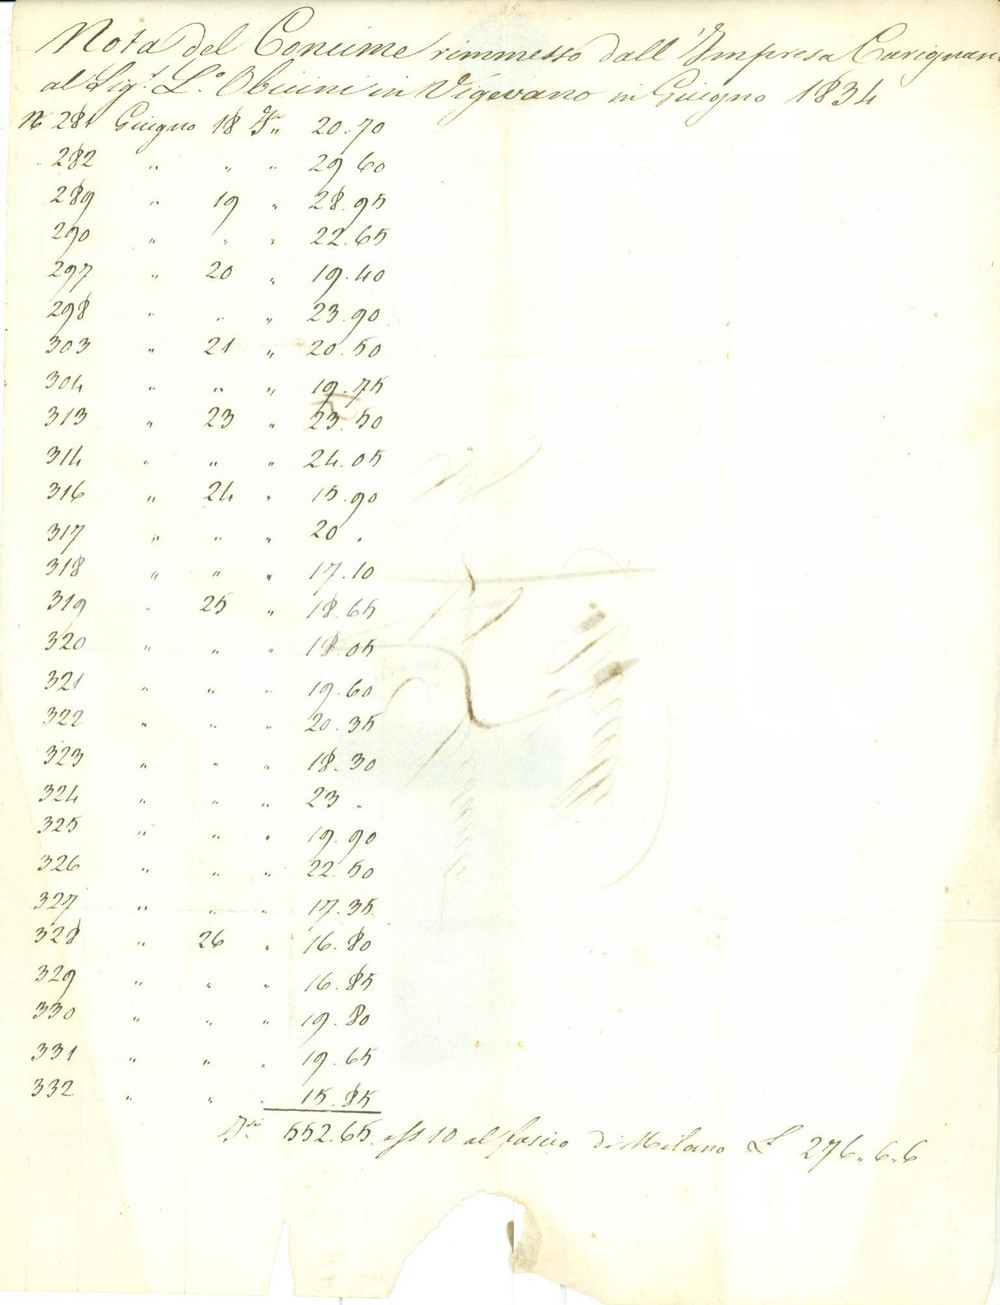 Nota del Concime rimmesso dall'Impresa Carignani
al Sig.r L.o Obicini in Vigevano in Giugno 1834
N 281 Giugno 18 F.i 20.70
282 " " " 29 60
289 " 19 " 28.95
290 " " " 22.65
297 " 20 " 19.40
298 " " " 23.90
303 " 21 " 20.50
304 " " " 19.75
313 " 23 " 23.50
314 " " " 24.05
316 " 24 " 15.90
317 " " " 20 "
318 " " " 17.10
319 " 25 " 18.65
320 " " " 18.05
321 " " " 19.60
322 " " " 20.35
323 " " " 18.30
324 " " " 23 "
325 " " " 19.90
326 " " " 22.50
327 " " " 17.35
328 " 26 " 16.80
329 " " " 16.85
330 " " " 19.80
331 " " " 19.65
332 " " " 15.85
F.i 552.65 a ss 10 al fascio di Milano L 276.6.6